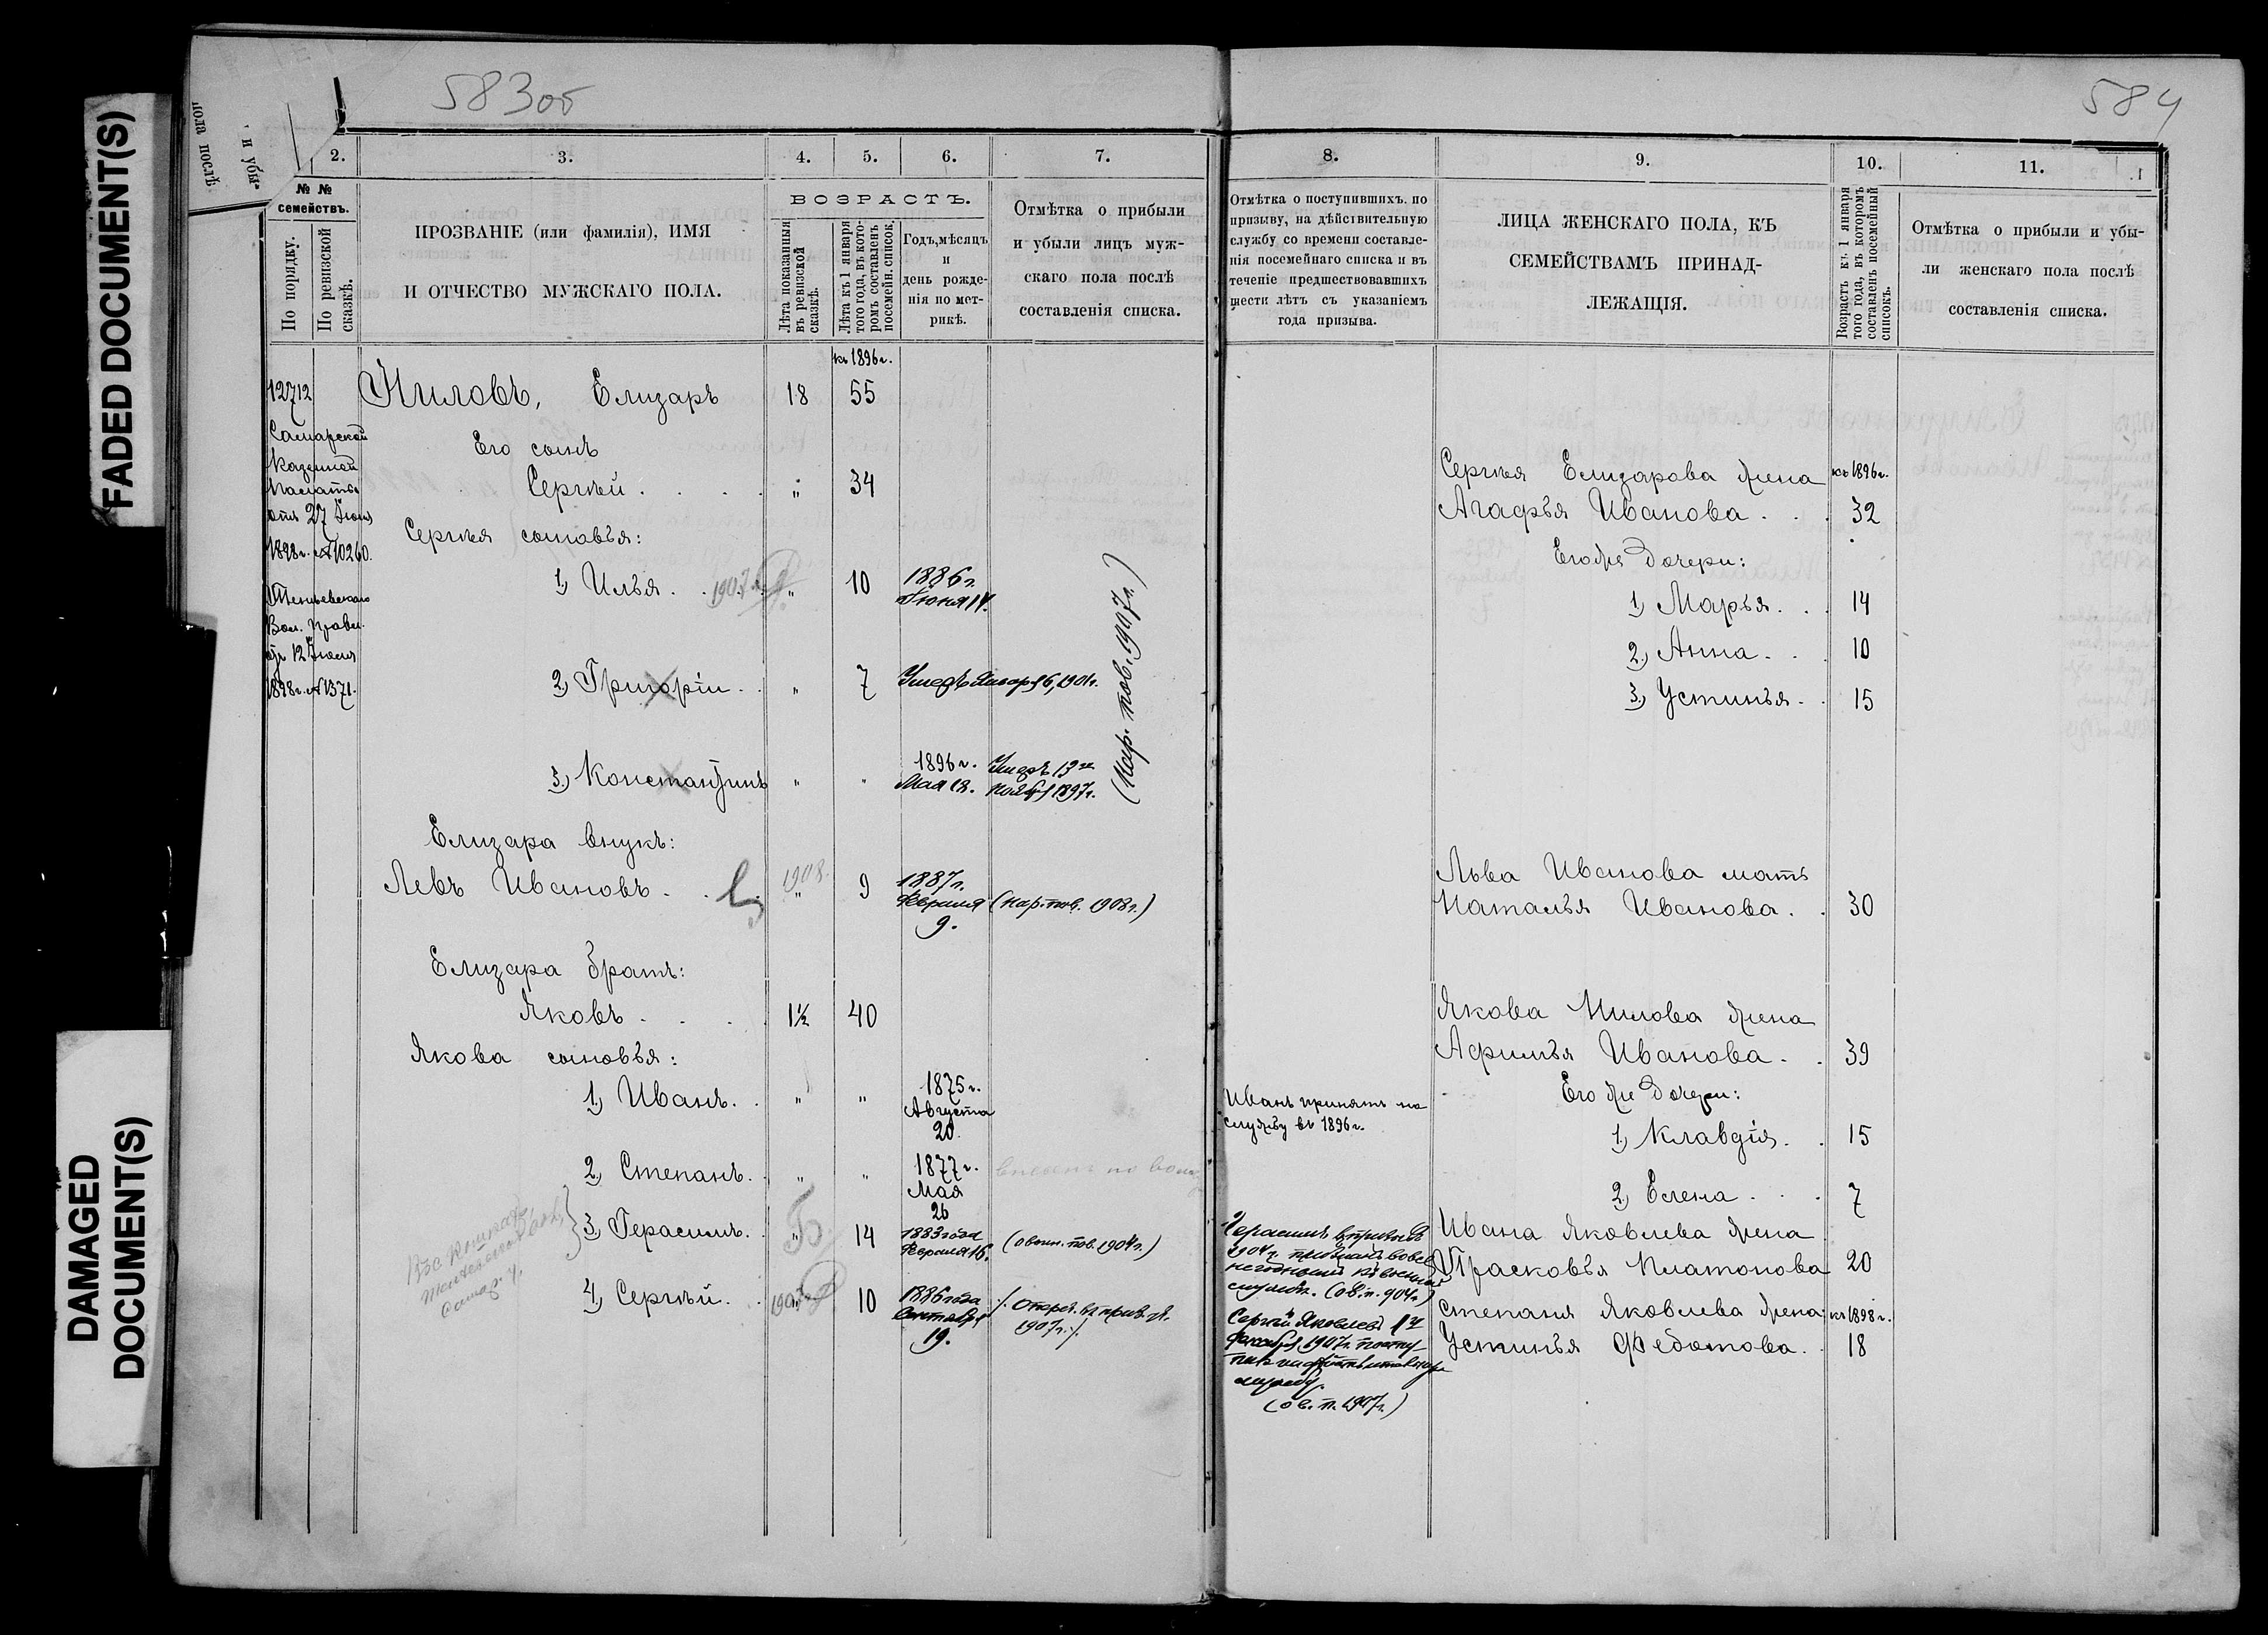 583об
584
FADED DOCUMENT(S)
DAMAGED
DOCUMENT(S)
пола послѣ
и убы-
2.
3.
4.
5.
6.
7.
№ №
семействъ.
По порядку.
По ревизской
сказкѣ.
ПРОЗВАНІЕ (или фамилія), ИМЯ
И ОТЧЕСТВО МУЖСКАГО ПОЛА.
ВОЗРАСТЪ.
Лѣта показанныя
въ ревизской
сказкѣ.
Лѣта къ 1 января
того года, въ кото-
ромъ составленъ
посемейн. список.
Годъ, мѣсяцъ
и
день рожде-
нія по мет-
рикѣ.
Отмѣтка о прибыли
и убыли лицъ муж-
скаго пола послѣ
составленія списка.
къ 1896 г.
12712
Ниловъ, Елизаръ 18 55
Самарской
Казенной
Палаты
отъ 27 Іюня
1898 г. № 10260.
Вол. Правл.
отъ 12 Іюля
1898 г. № 1371.
Его сынъ
Сергѣй . . . . " 34
Сергѣя сыновья:
1, Илья . . 1907 г. " 10 1886 г.
Іюня 14.
2, Григорій . . " 7 Умеръ Января 6, 1901 г.
3, Константинъ " " 1896 г. Умеръ 13го
Мая 18. Ноября 1897 г.
(Нар. пов. 1907 г.)
Елизара внукъ:
Левъ Ивановъ . . 1908. " 9 1887 г.
Февраля (нар. пов. 1908 г.)
9.
Елизара братъ:
Яковъ . . . . 1½ 40
Якова сыновья:
1, Иванъ. . " " 1875 г.
Августа
20.
2, Степанъ. . " " 1877 г.
Мая
26
3, Герасимъ. . Б " 14 1883 года (о воин. пов. 1904 г.)
Февраля 16.
4, Сергѣй. . 1907 " 10 1886 года
19. 1907 г.
8.
9.
10.
11.
Отмѣтка о поступившихъ, по
призыву, на дѣйствительную
службу со времени составле-
нія посемейнаго списка и въ
теченіе предшествовавшихъ
шести лѣтъ съ указаніемъ
года призыва.
ЛИЦА ЖЕНСКАГО ПОЛА, КЪ
СЕМЕЙСТВАМЪ ПРИНАД-
ЛЕЖАЩІЯ.
Возрастъ къ 1 января
того года, въ которомъ
составленъ посемейный
списокъ.
Отмѣтка о прибыли и убы-
ли женскаго пола послѣ
составленія списка.
Сергѣя Елизарова жена къ 1896 г.
Агафья Иванова . . . 32
Его же дочери:
1, Марья . . . 14
2, Анна . . . 10
3, Устинья . . 15
Льва Иванова мать
Наталья Иванова . . 30
Якова Нилова жена
Афимья Иванова . . 39
Иванъ принятъ на
службу въ 1896 г.
Его же дочери:
1, Клавдія . . 15
2, Елена . . . 7
Герасимъ въ призывъ
1904 г. признанъ вовсе
негоднымъ къ военной
службѣ. (о в. п. 904 г.)
Ивана Яковлева жена
Прасковья Платонова 20
Степана Яковлева жена: къ 1898 г.
Устинья Федотова . . 18
Сергѣй Яковлевъ 1го
1907 г. посту-
службу.
(о в. п. 1907 г.)